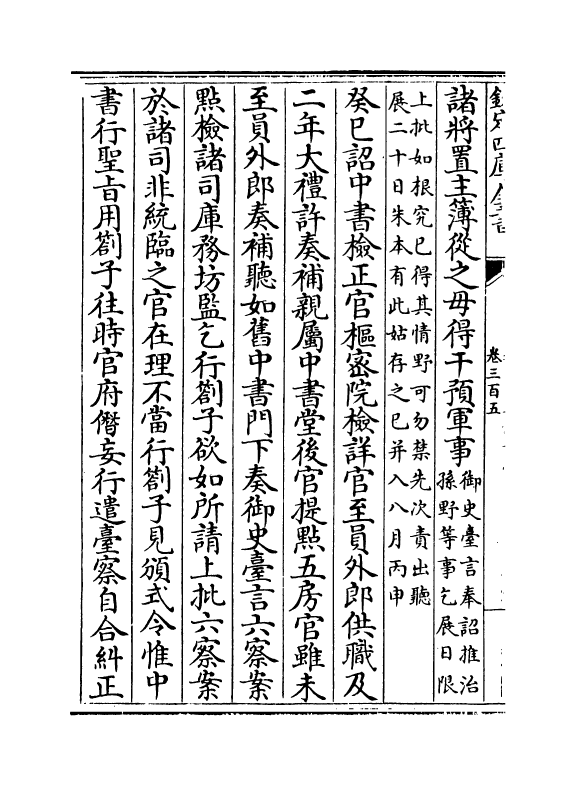 欽定四庫全書
卷三百五
諸將置主簿從之毋得干預軍事
御史臺言奉詔推治
孫野等事乞展日限
上批如根究已得其情野可勿禁先次責出聽
展二十日朱本有此姑存之已并入八月丙申
癸巳詔中書檢正官樞密院檢詳官至員外郎供職及
二年大禮許奏補親屬中書堂後官提點五房官雖未
至員外郎奏補聽如舊中書門下奏御史臺言六察案
點檢諸司庫務坊監乞行劄子欲如所請上批六察案
於諸司非統臨之官在理不當行劄子見頒式令惟中
書行聖旨用劄子往時官府僭妄行遣臺察自合糾正